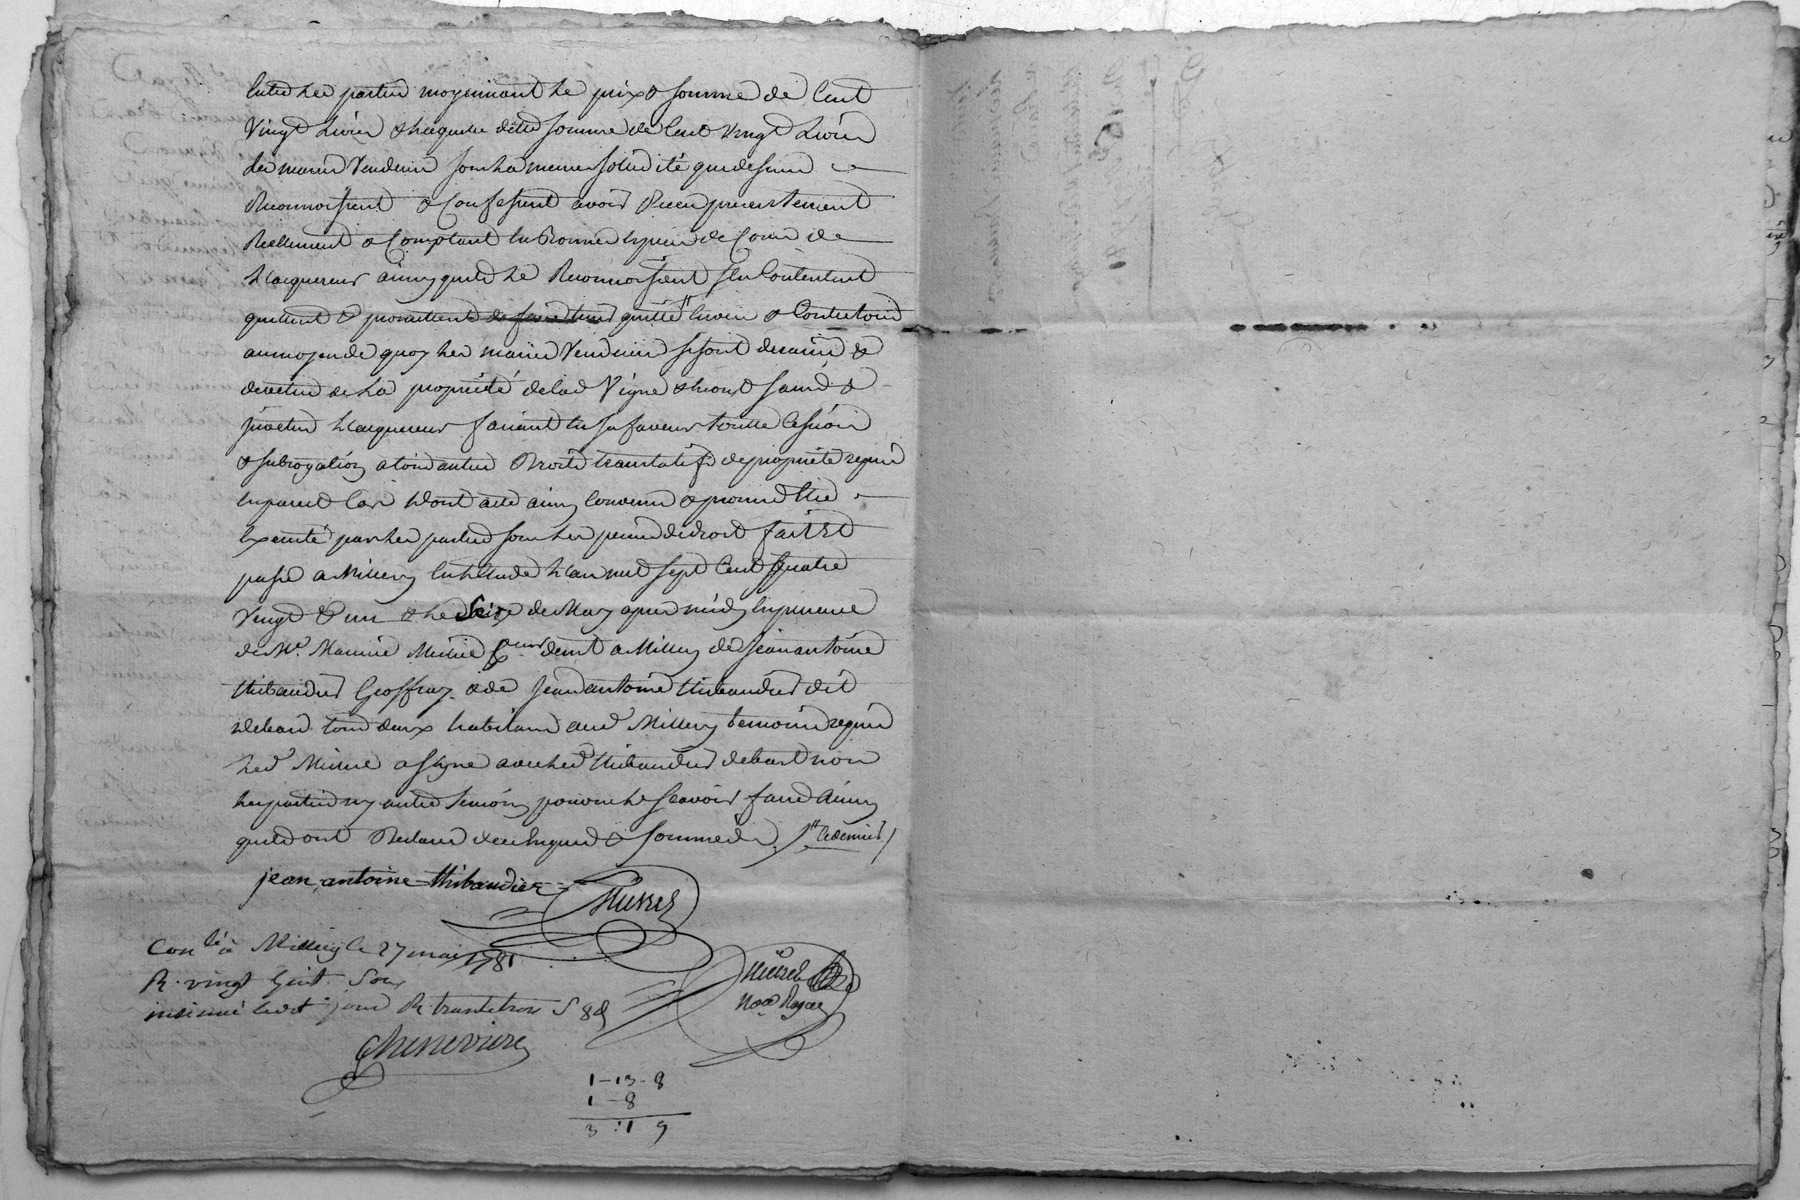 Entre les parties moyennant le prix & somme de Cent
Vingt Livres & laquelle ditte somme de Cent Vingt Livres
les mariés Vendeurs sous la meme solidité que dessus
Reconnoissent & Confessent avoir Receu presentement
Reellement & Comptant En Bonnes Especes de Cours de
L'acquereur ainsy quils Le Reconnoissent s'En Contentent
quittent & promettent de faire tenir quitte Envers & Contre tous
au moyen de quoy les mariés Vendeurs se sont demis &
devetus de La propriété de lad Vigne & En ont saisi &
investu L'acquereur faisant En sa faveur toutte Cession
& subrogation & tous autres Droits translatifs de propriété requis
En pareil Cas Dont acte ainsy Convenu & promis Etre
Executé par les parties sous les peines de droit fait Et
passé a Millery En L'Etude L'an mil sept Cent Quatre
Vingt & un & le seize de May apres midy En presence
de Me. Maurice demt a Millery de Jean antoine
thibaudier Geoffray & de Jean antoine thibaudier dit
tous deux habitans aud Millery temoins requis
Led a signé avec led thibaudier non
les parties ny autre temoin pour ne le sçavoir faire Ainsy
quils ont Declaré de ce Enquis & sommés. Ce dernier
jean antoine thibaudier
Conlé à Millery le 27 mai 1781
R. vingt huit Sous
insinué led jour R. trente trois S 8d
Nore Royal
Chenevière
1-13-8
1-8
3:1 9